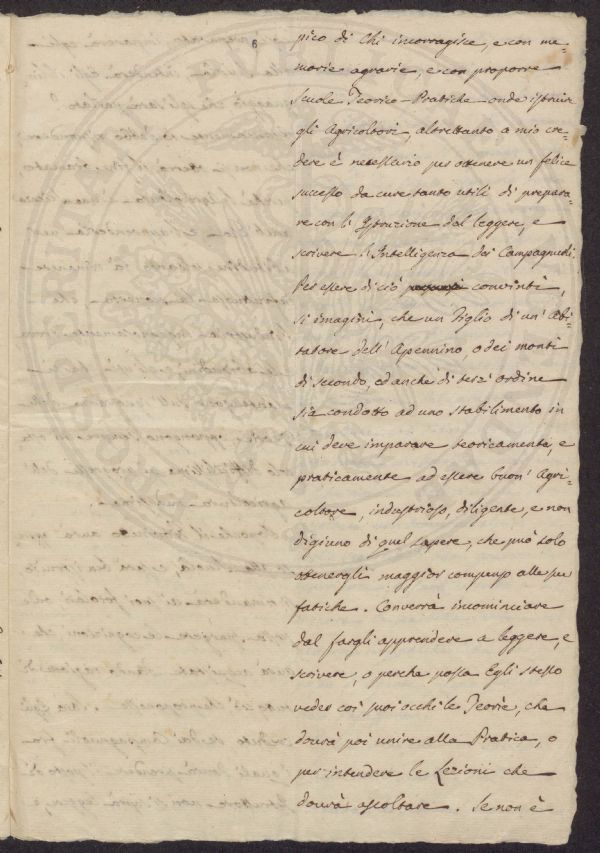 6
pico di chi incorragisce, e con me=
morie agrarie, e con proporre
scuole Teorico-Pratiche onde istruire
gli Agricoltori, altrettanto a mio cre=
dere è necessario per ottenere un felice
successo da cure tanto utili di prepara=
re con l'Istruzione del leggere, e
scrivere l'Intelligenza dei Campagnuoli.
Per essere di ciò convinti,
si imagini, che un Figlio di un' Abi=
tatore dell' Apennino, o dei monti
di secondo, ed anche di terz' ordine
sia condotto ad uno stabilimento in
cui deve imparare teoricamente, e
praticamente ad essere buon' Agri=
coltore, industrioso, diligente, e non
digiuno di quel sapere, che può solo
ottenergli maggior compenso alle sue
fatiche. Converrà incominciare
dal fargli apprendere a leggere, e
scrivere, o perche possa Egli stesso
veder coi suoi occhi le Teorie, che
dovrà poi unire alla Pratica, o
per intendere le Lezioni che
dovrà ascoltare. Se non è